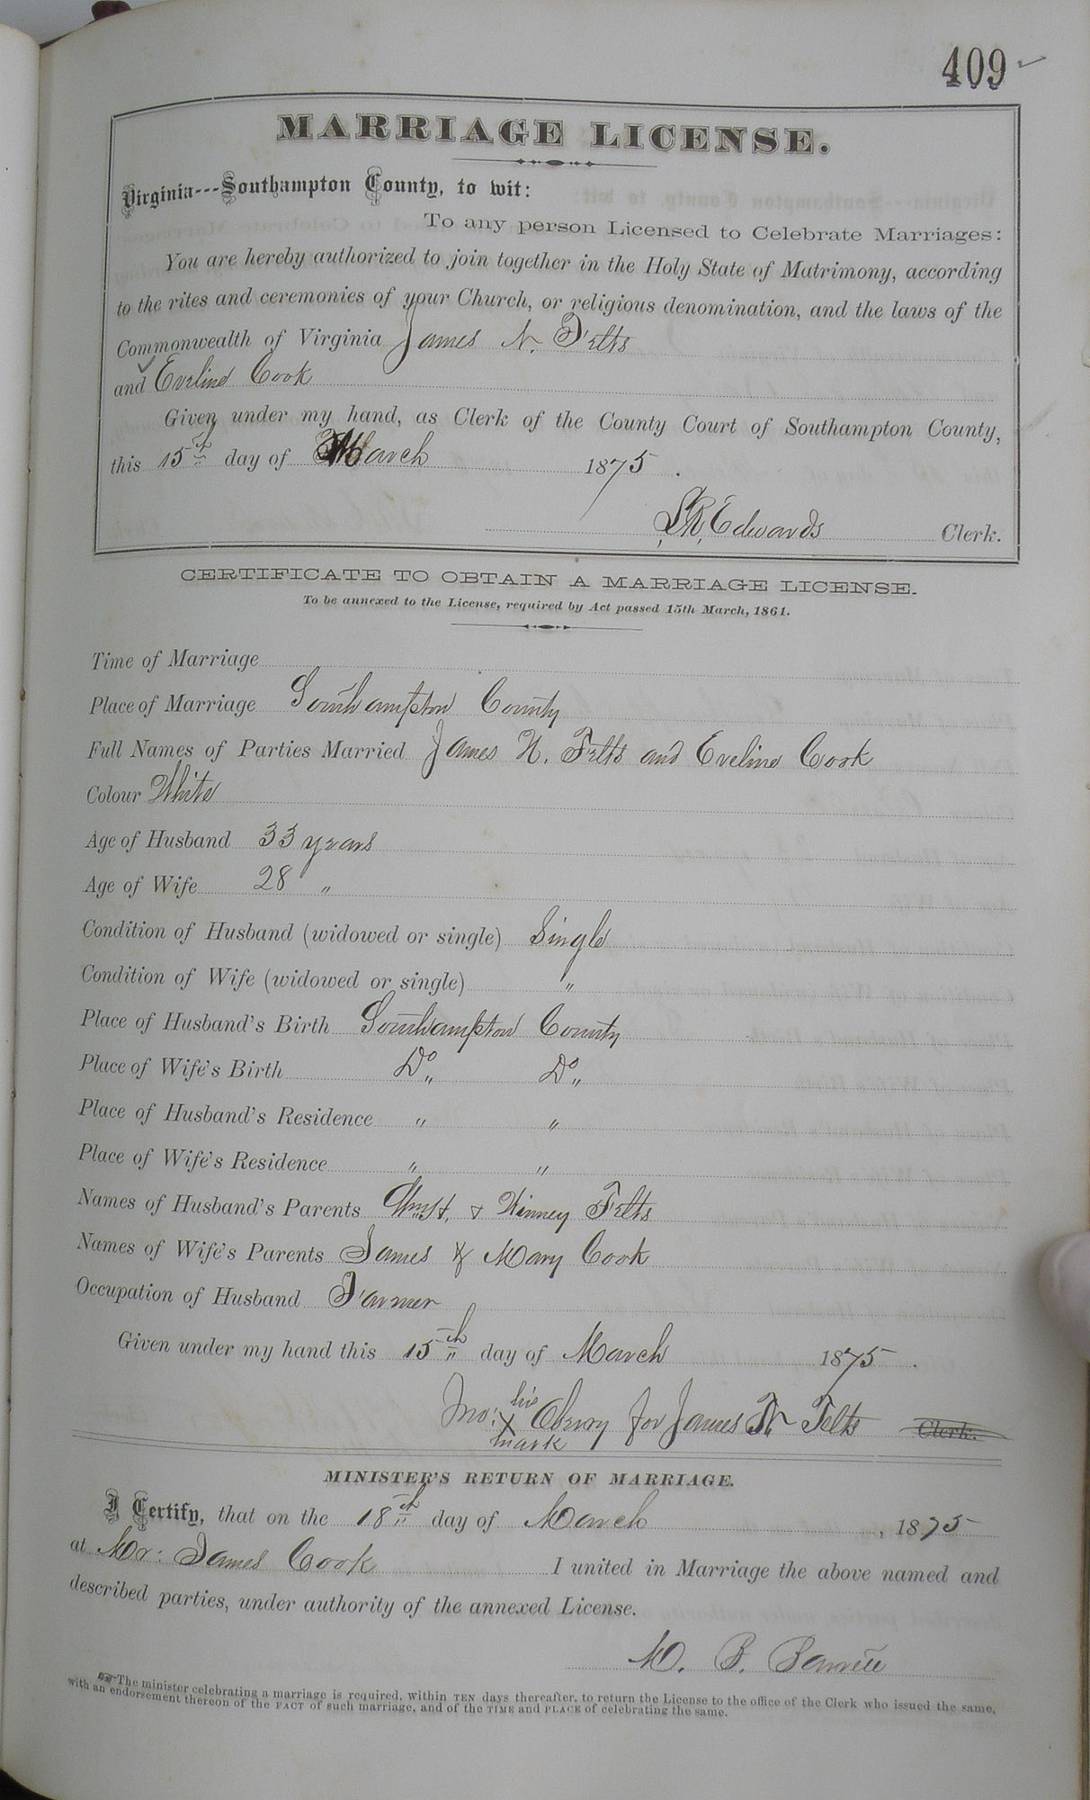 409
MARRIAGE LICENSE.
Virginia---Southampton County, to wit:
To any person Licensed to Celebrate Marriages:
You are hereby authorized to join together in the Holy State of Matrimony, according
to the rites and ceremonies of your Church, or religious denomination, and the laws of the
Commonwealth of Virginia James N. Felts
and Eveline Cook
Given under my hand, as Clerk of the County Court of Southampton County,
this 15th day of March 1875.
Edwards Clerk.
CERTIFICATE TO OBTAIN A MARRIAGE LICENSE.
To be annexed to the License, required by Act passed 15th March, 1861.
Time of Marriage
Place of Marriage Southampton County
Full Names of Parties Married James N. Felts and Eveline Cook
Colour White
Age of Husband 33 years
Age of Wife 28 "
Condition of Husband (widowed or single) Single
Condition of Wife (widowed or single) "
Place of Husband's Birth Southampton County
Place of Wife's Birth Do Do
Place of Husband's Residence " "
Place of Wife's Residence " "
Names of Husband's Parents & Felts
Names of Wife's Parents James & Mary Cook
Occupation of Husband Farmer
Given under my hand this 15th day of March 1875.
his
Jno: X Obery for James N Felts Clerk.
mark
MINISTER'S RETURN OF MARRIAGE.
I Certify, that on the 18th day of March, 1875
at Mr: James Cook I united in Marriage the above named and
described parties, under authority of the annexed License.
M. B. Barrett
The minister celebrating a marriage is required, within TEN days thereafter, to return the License to the office of the Clerk who issued the same,
with an endorsement thereon of the FACT of such marriage, and of the TIME and PLACE of celebrating the same.